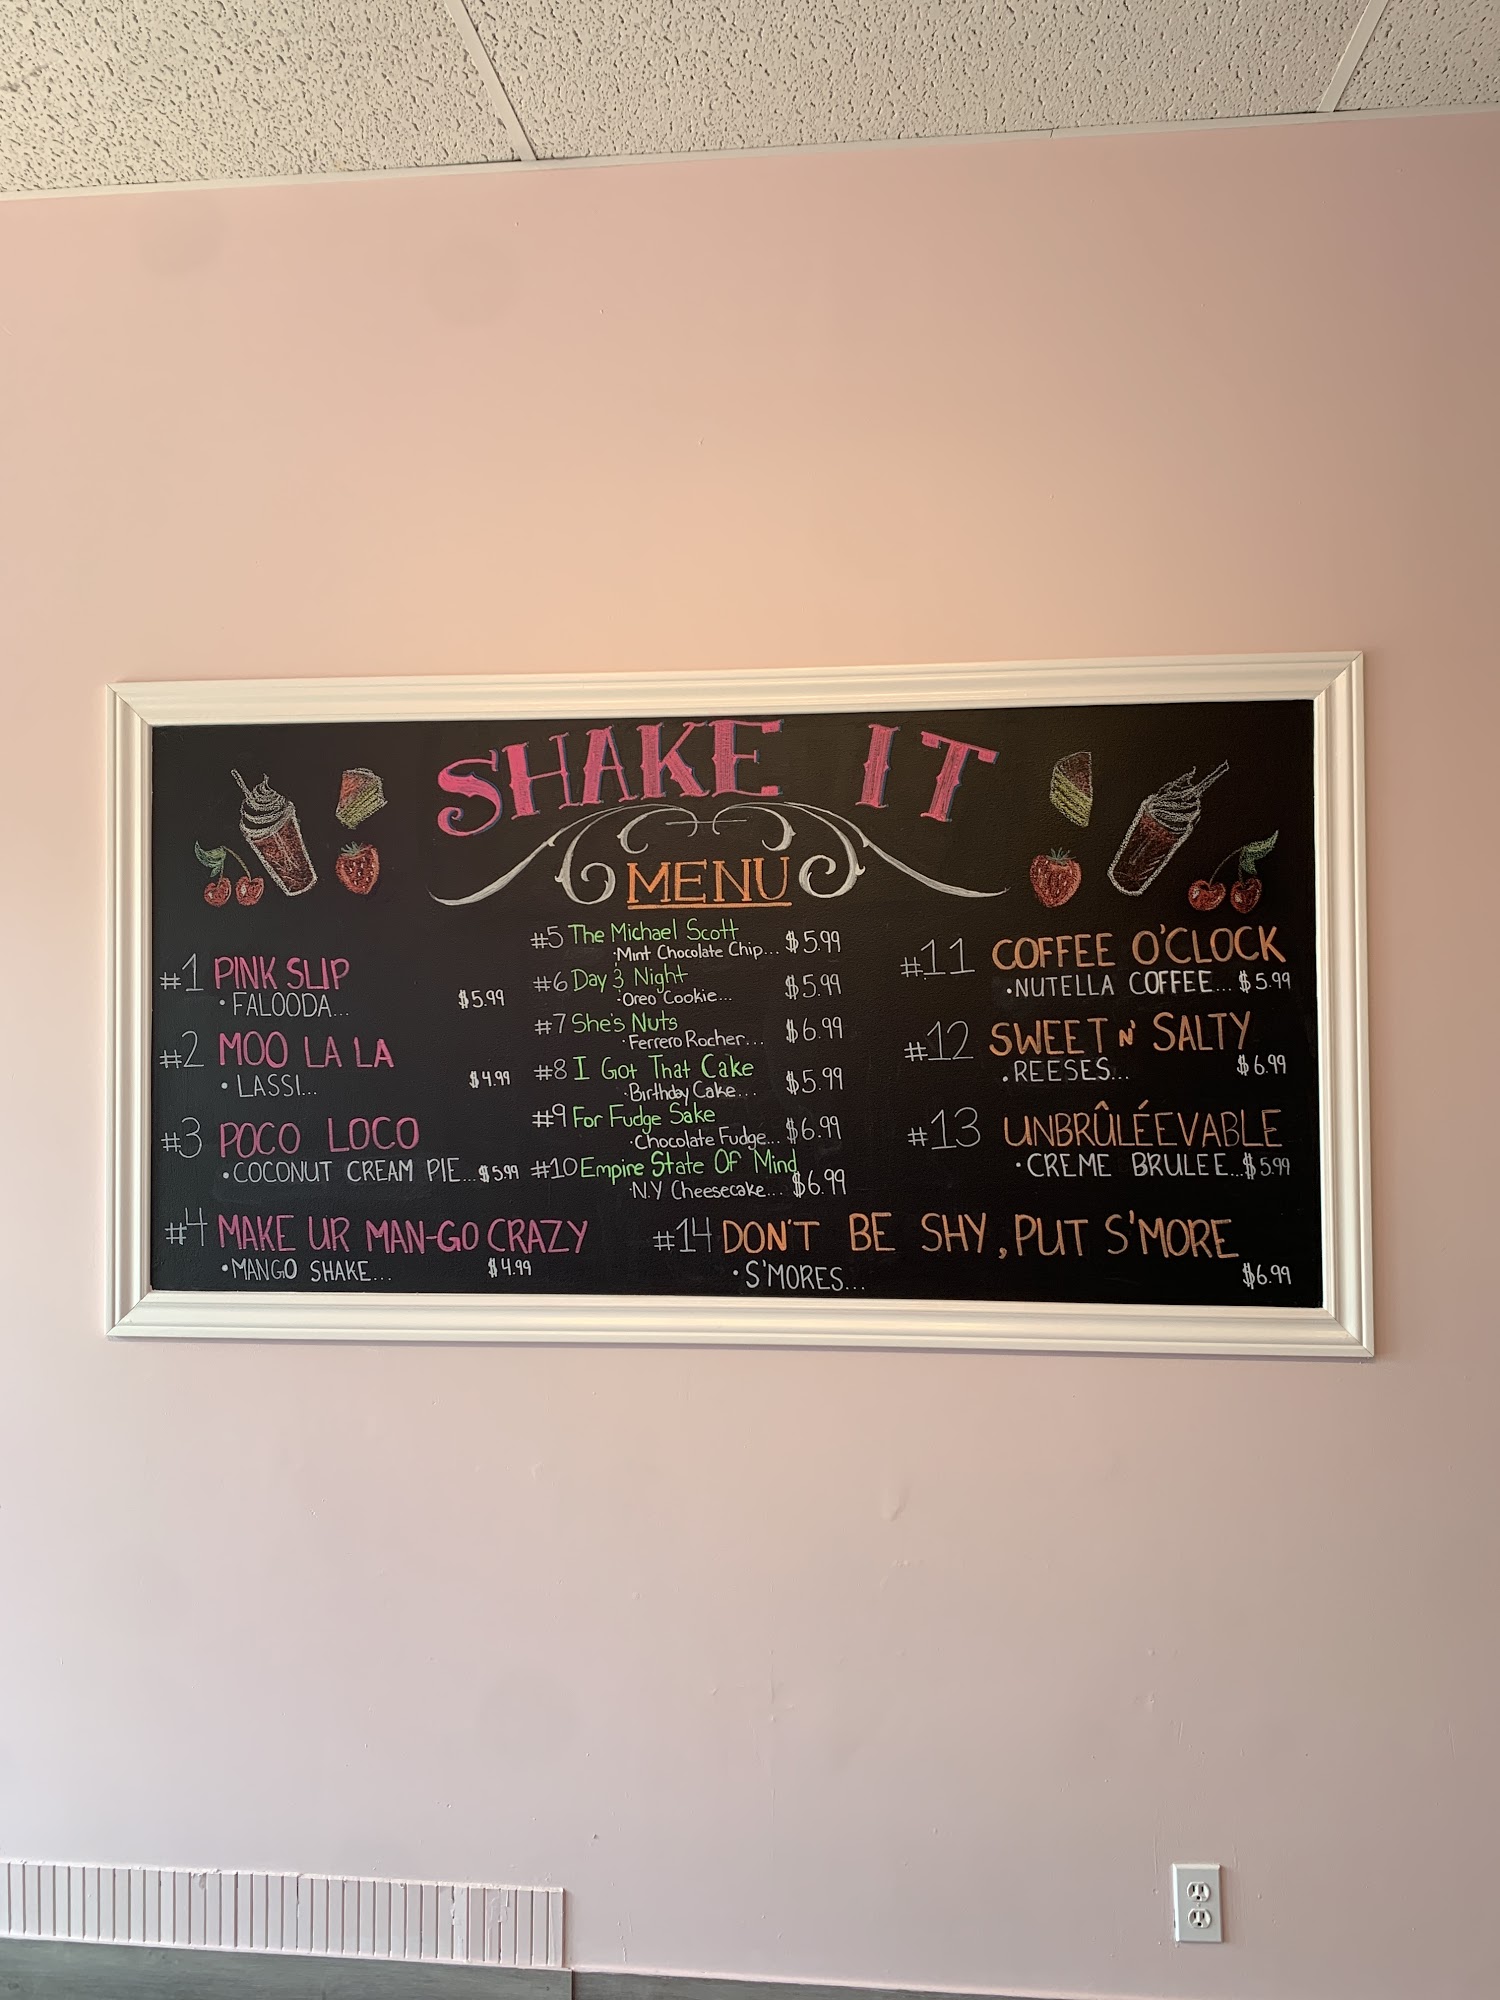 SHAKE IT
MENU
#1 PINK SLIP
• FALOODA... $5.99
#2 MOO LA LA
• LASSI... $4.99
#3 POCO LOCO
• COCONUT CREAM PIE... $5.99
#4 MAKE UR MAN-GO CRAZY
• MANGO SHAKE... $4.99
#5 The Michael Scott
• Mint Chocolate Chip... $5.99
#6 Day & Night
• Oreo Cookie... $5.99
#7 She's Nuts
• Ferrero Rocher... $6.99
#8 I Got That Cake
• Birthday Cake... $5.99
#9 For Fudge Sake
• Chocolate Fudge... $6.99
#10 Empire State Of Mind
• N.Y Cheesecake... $6.99
#11 COFFEE O'CLOCK
• NUTELLA COFFEE... $5.99
#12 SWEET N' SALTY
• REESES... $6.99
#13 UNBRÛLÉEVABLE
• CREME BRULEE... $5.99
#14 DON'T BE SHY, PUT S'MORE
• S'MORES... $6.99